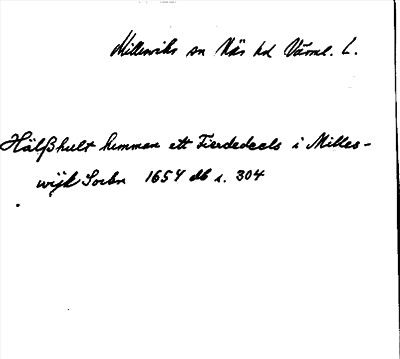 Millesviks sn Näs hd Värml. L.
Hälßhult hemman ett Fierdedeels i Milles-
wijk Sochn 1654 db s. 304